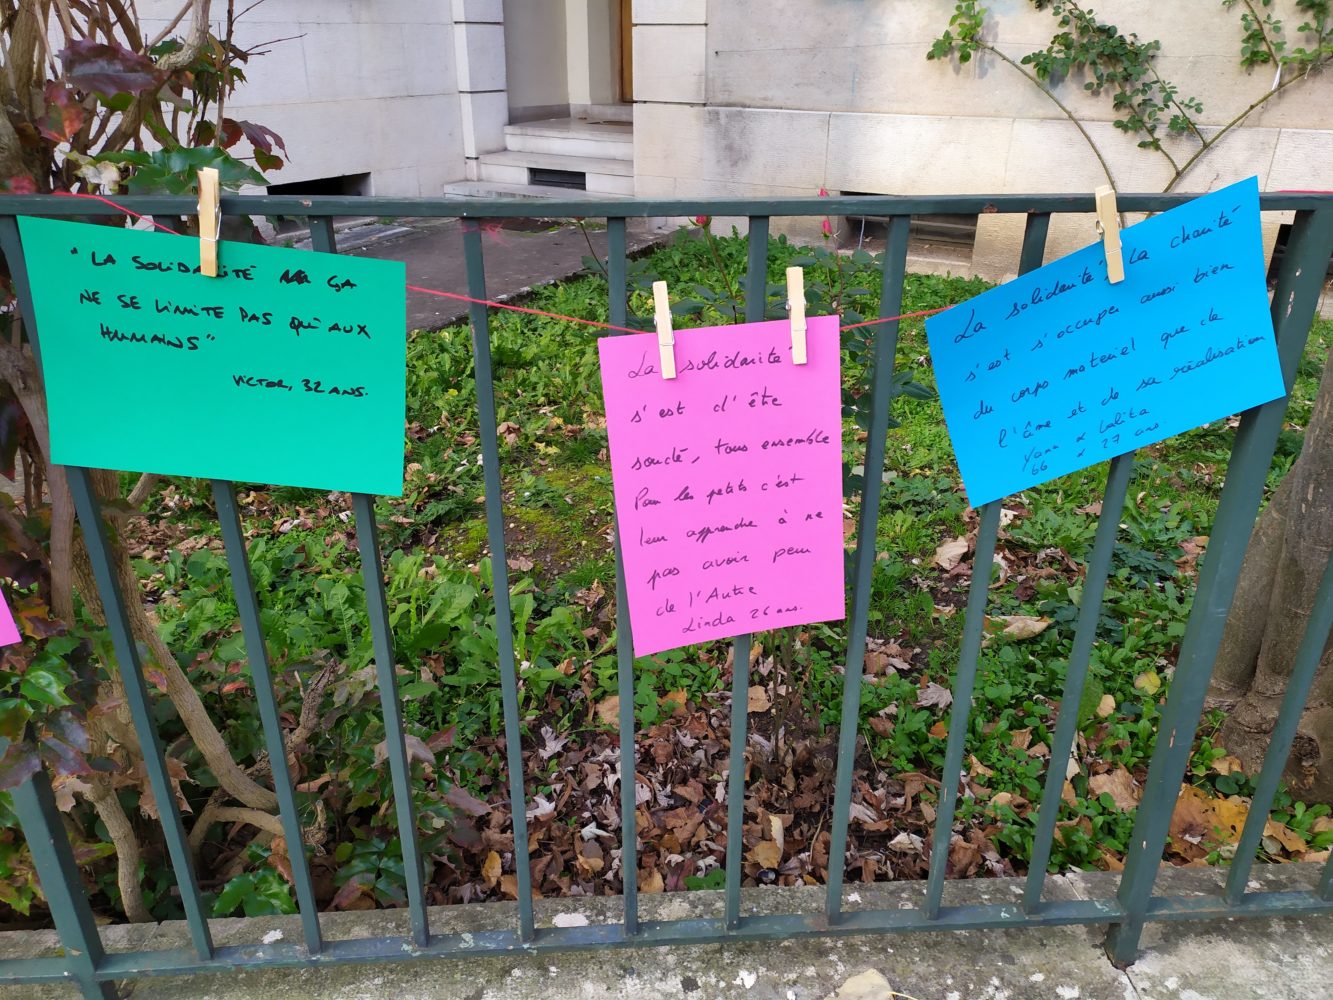 "LA SOLIDARITÉ ÇA
NE SE LIMITE PAS QU'AUX
HUMAINS"
VICTOR, 32 ANS.
La solidarité
s'est d'être
soudé, tous ensemble
Pour les petits c'est
leur apprendre à ne
pas avoir peur
de l'Autre
Linda 26 ans.
La solidarité, la charité
s'est s'occuper aussi bien
du corps matériel que de
l'âme et de sa réalisation
Yann & Lalita
66 & 27 ans.